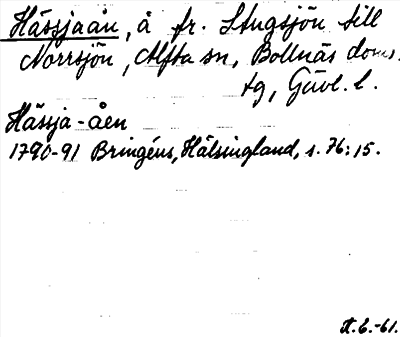 Hässjaån, å fr. Stugsjön till
Norrsjön, Alfta sn, Bollnäs doms.
tg, Gävl. l.
Hässja-åen
1790-91 Bringéus, Hälsingland, s. 76:15.
A.E.-61.